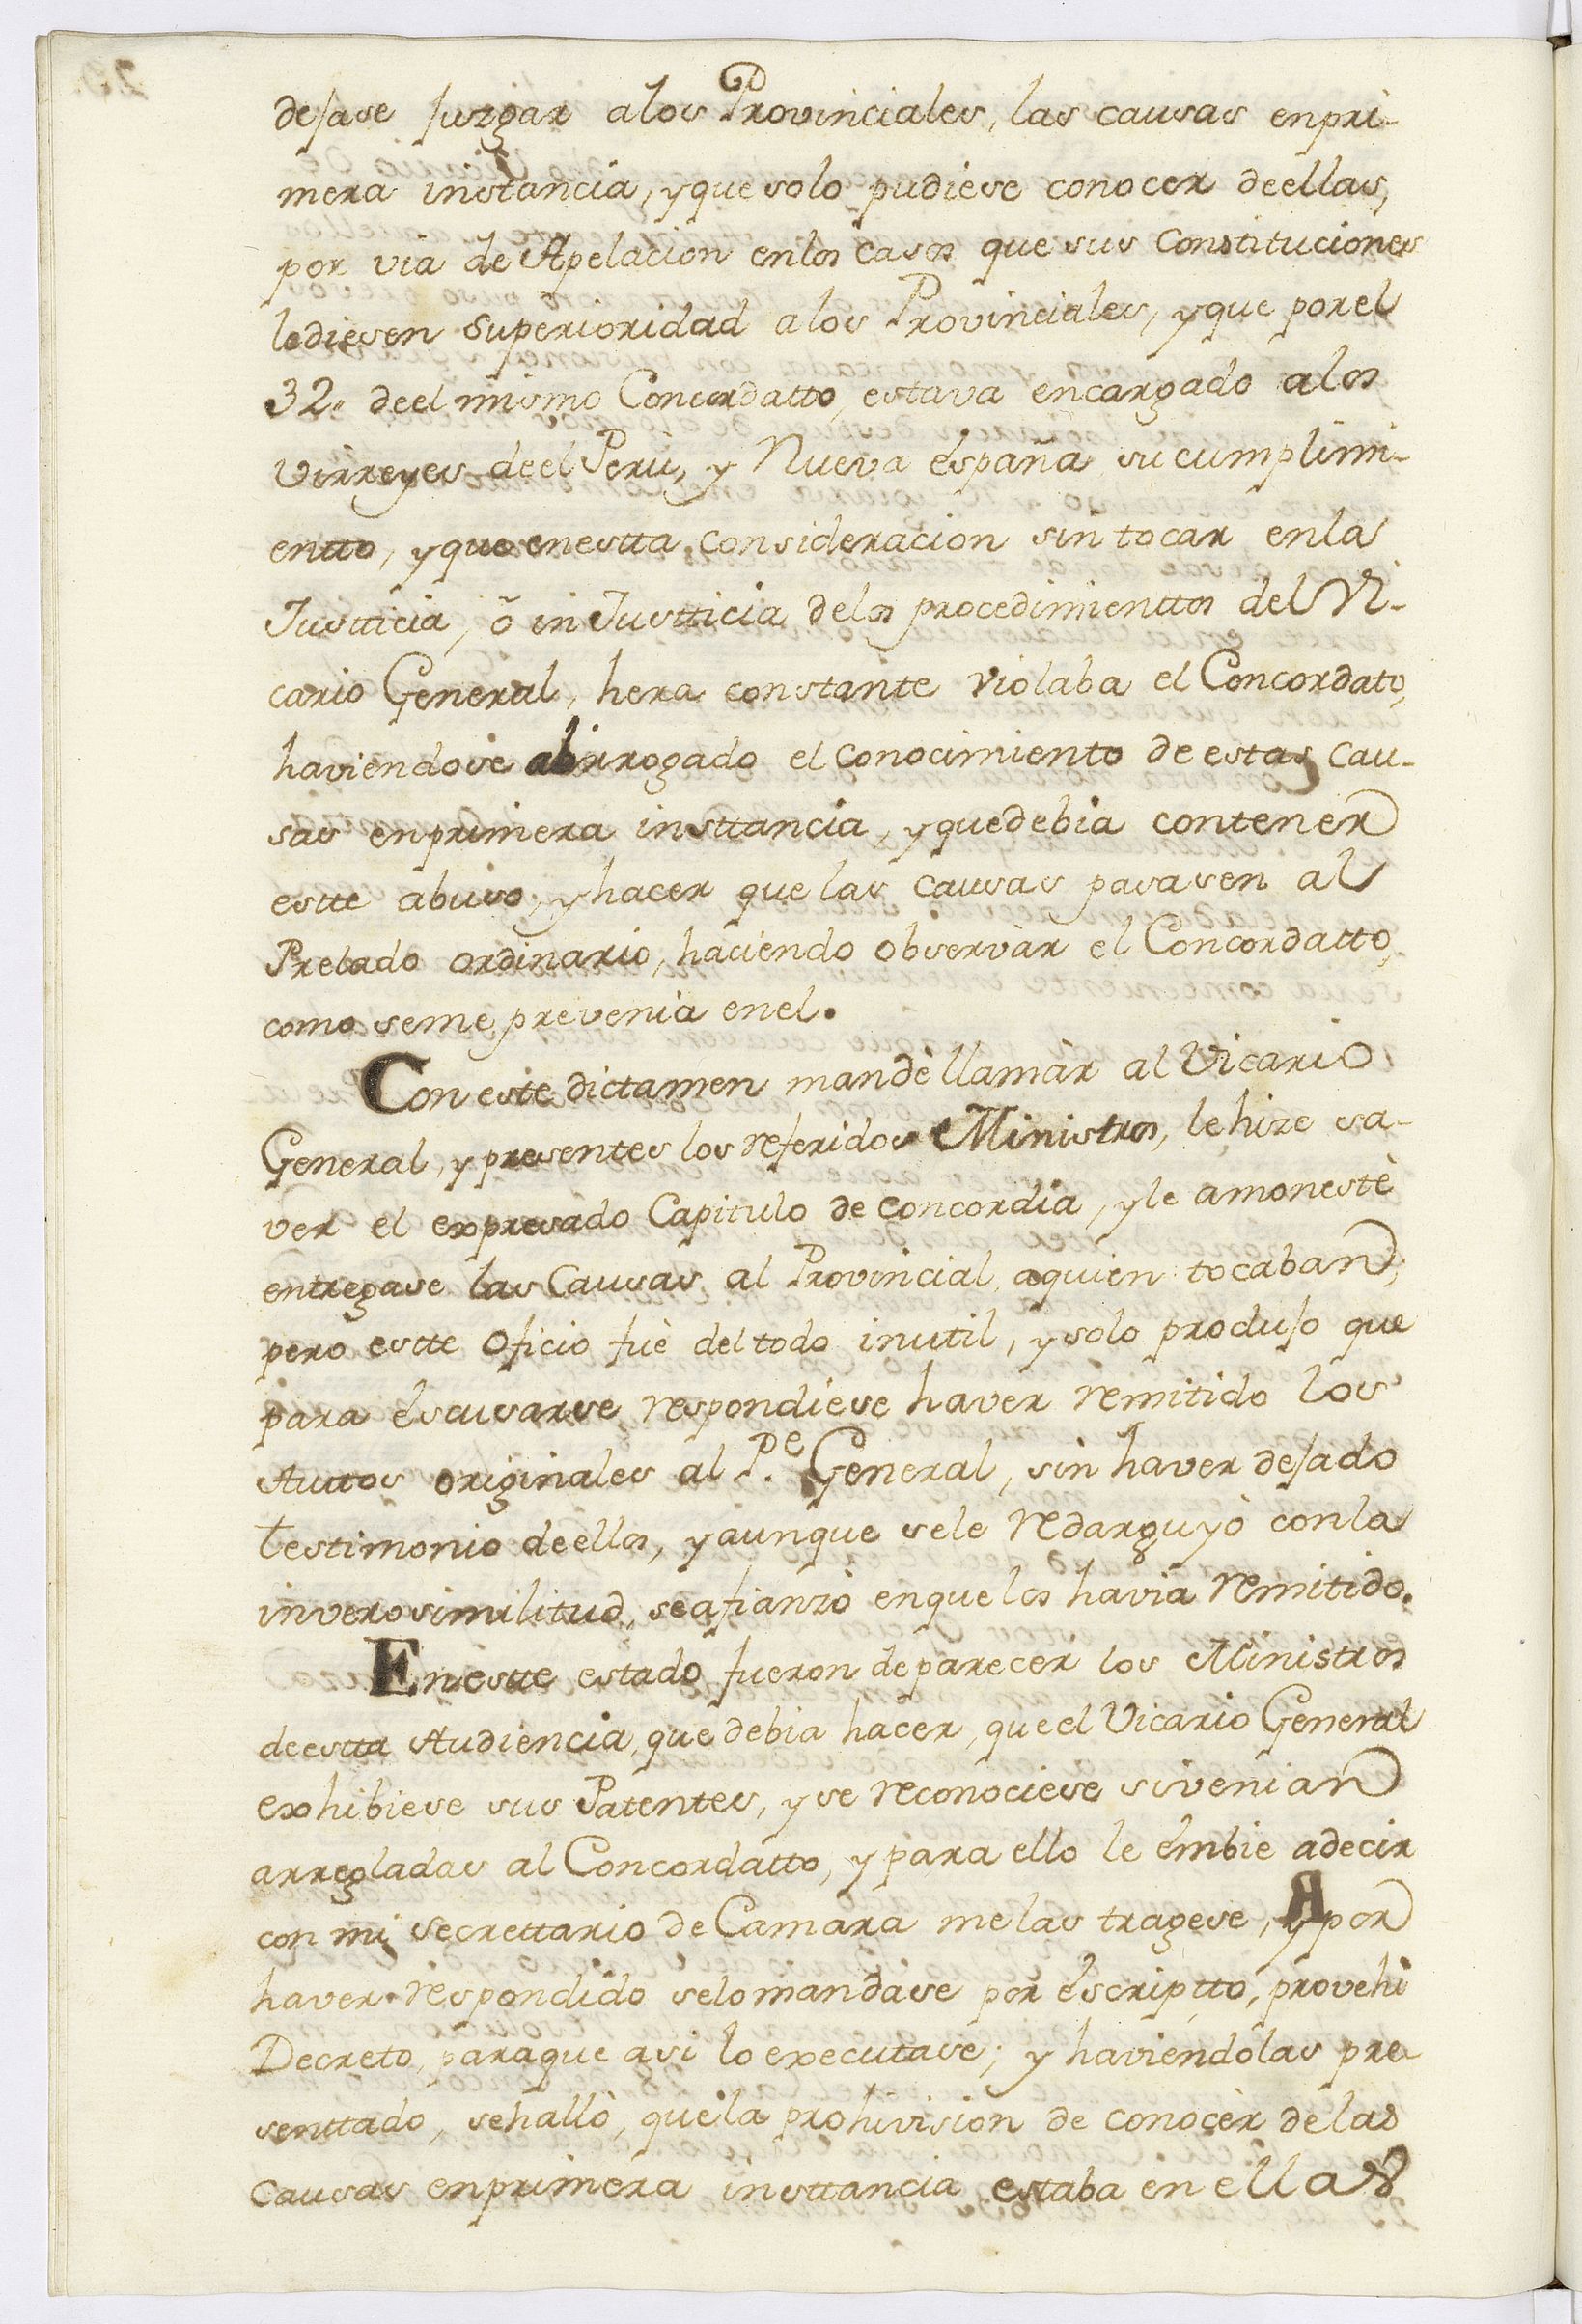 dejase Juzgar alos Provinciales, las causas enpri-
mera instancia, y que solo pudiese conocer deellas,
por via de Apelacion enlos casos que sus Constituciones
lediesen Superioridad alos Provinciales, y que porel
32. deel mismo Concordatto, estava encargado alos
Virreyes deel Perù, y Nueva España su cumplimi-
entto, y que enestta consideracion sin tocar enla
Justticia, ô inJustticia delos procedimienttos del Vi-
cario General, hera constante violaba el Concordato,
haviendose abrrogado el conocimiento de estas cau-
sas enprimera insttancia, y quedebia contener
estte abuso, y hacer que las causas pasasen al
Prelado ordinario, haciendo observàr el Concordatto,
como seme prevenia enel.
Con este dictamen mandè llamàr al Vicario
General, y presentes los referidos Ministros, lehize sa-
ver el expresado Capitulo de Concordia, y le amonestè
entregase las Causas al Provincial, aquien tocaban;
pero estte Oficio fuè deltodo inutil, y solo produjo que
para escusarse respondiese haver remitido los
Auttos originales al P.e General, sin haver dejado
testimonio deellos, y aunque sele redarguyò conla
inverosimilitud, seafianzò enque los havia remitido.
Enestte estado fueron deparecer los Ministros
deestta Audiencia, que debia hacer, que el Vicario General
exhibiese sus Patentes, y se reconociese sivenian
arregladas al Concordatto, y para ello le embie adecir
con mi Secrettario de Camara melas tragese, y por
haver respondido selomandàse por escriptto, provehi
Decreto, paraque asi lo executase; y haviendolas pre-
senttado, sehallò, quela prohivision de conocèr delas
Causas enprimera insttancia estaba en ellas